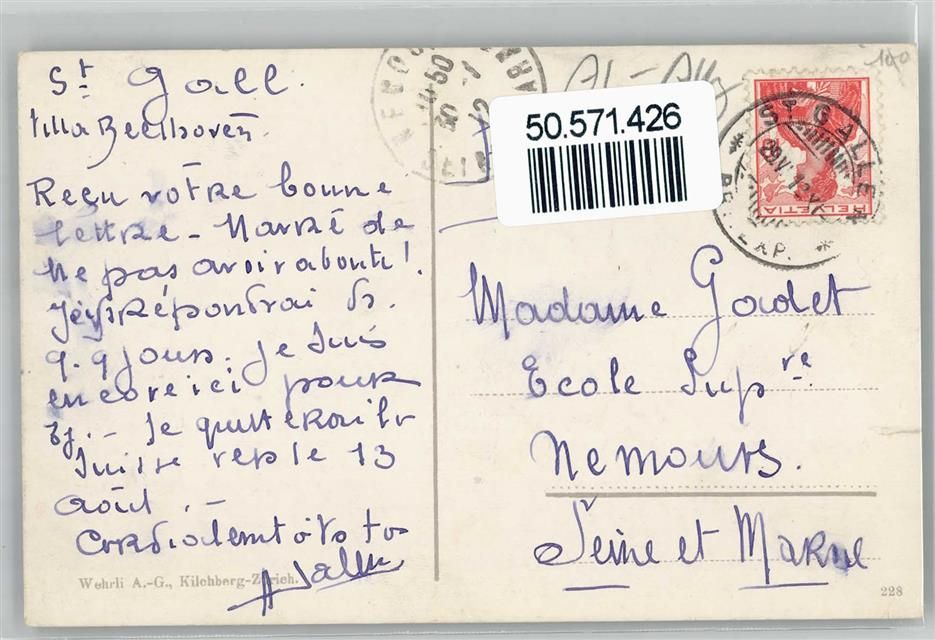 St Gall.
Villa Beethoven.
Reçu votre bonne
lettre - Navré de
ne pas avoir abouti!
J'y répondrai ds.
q.q jours. Je suis
encore ici pour
3j. - Je quitterai la
Suisse vers le 13
août. -
Cordialemt à vs ts
Wehrli A.-G., Kilchberg-Zürich.
50.571.426
100
ST. GALLEN
BR. EXP.
HELVETIA
Madame Gadet
Ecole Supre
Nemours.
Seine et Marne
228